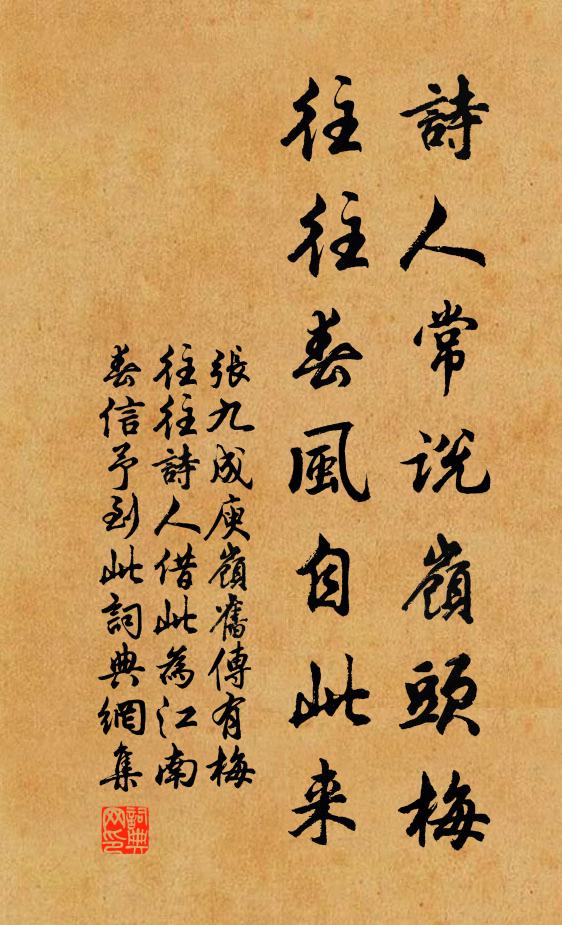 詩人常說嶺頭梅
往往春風自此来
張九成庾嶺舊傳有梅
往往詩人借此為江南
春信予到此詞典網集
詞典网印